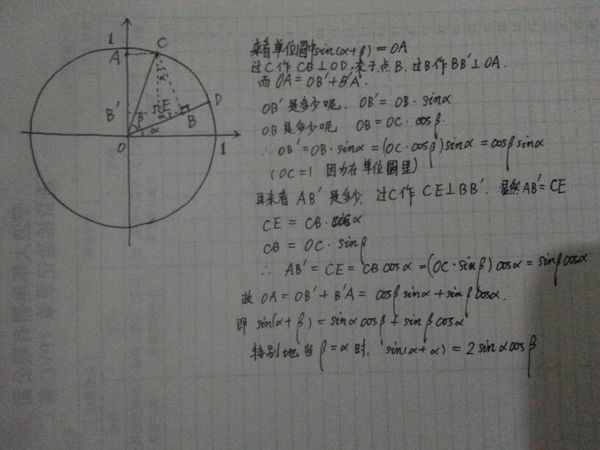 来看单位圆中sin(α+β)=OA
过C作CB⊥OD,来于点B.过B作BB'⊥OA.
而OA=OB'+B'A.
OB'是多少呢. OB'=OB·sinα
OB是多少呢 OB=OC·cosβ.
∴OB'=OB·sinα=(OC·cosβ)sinα=cosβsinα
(OC=1 因为在单位圆里)
再来看AB'是多少.过C作CE⊥BB'.显然AB'=CE
CE=CB·cosα
CB=OC·sinβ
∴ AB'=CE=CBcosα=(OC·sinβ)cosα=sinβcosα
故 OA=OB'+B'A=cosβsinα+sinβcosα.
即 sin(α+β)=sinαcosβ+sinβcosα
特别地当β=α时. sin(α+α)=2sinαcosβ
1
A
C
α
B'
β
E
α
B
D
O
α
1